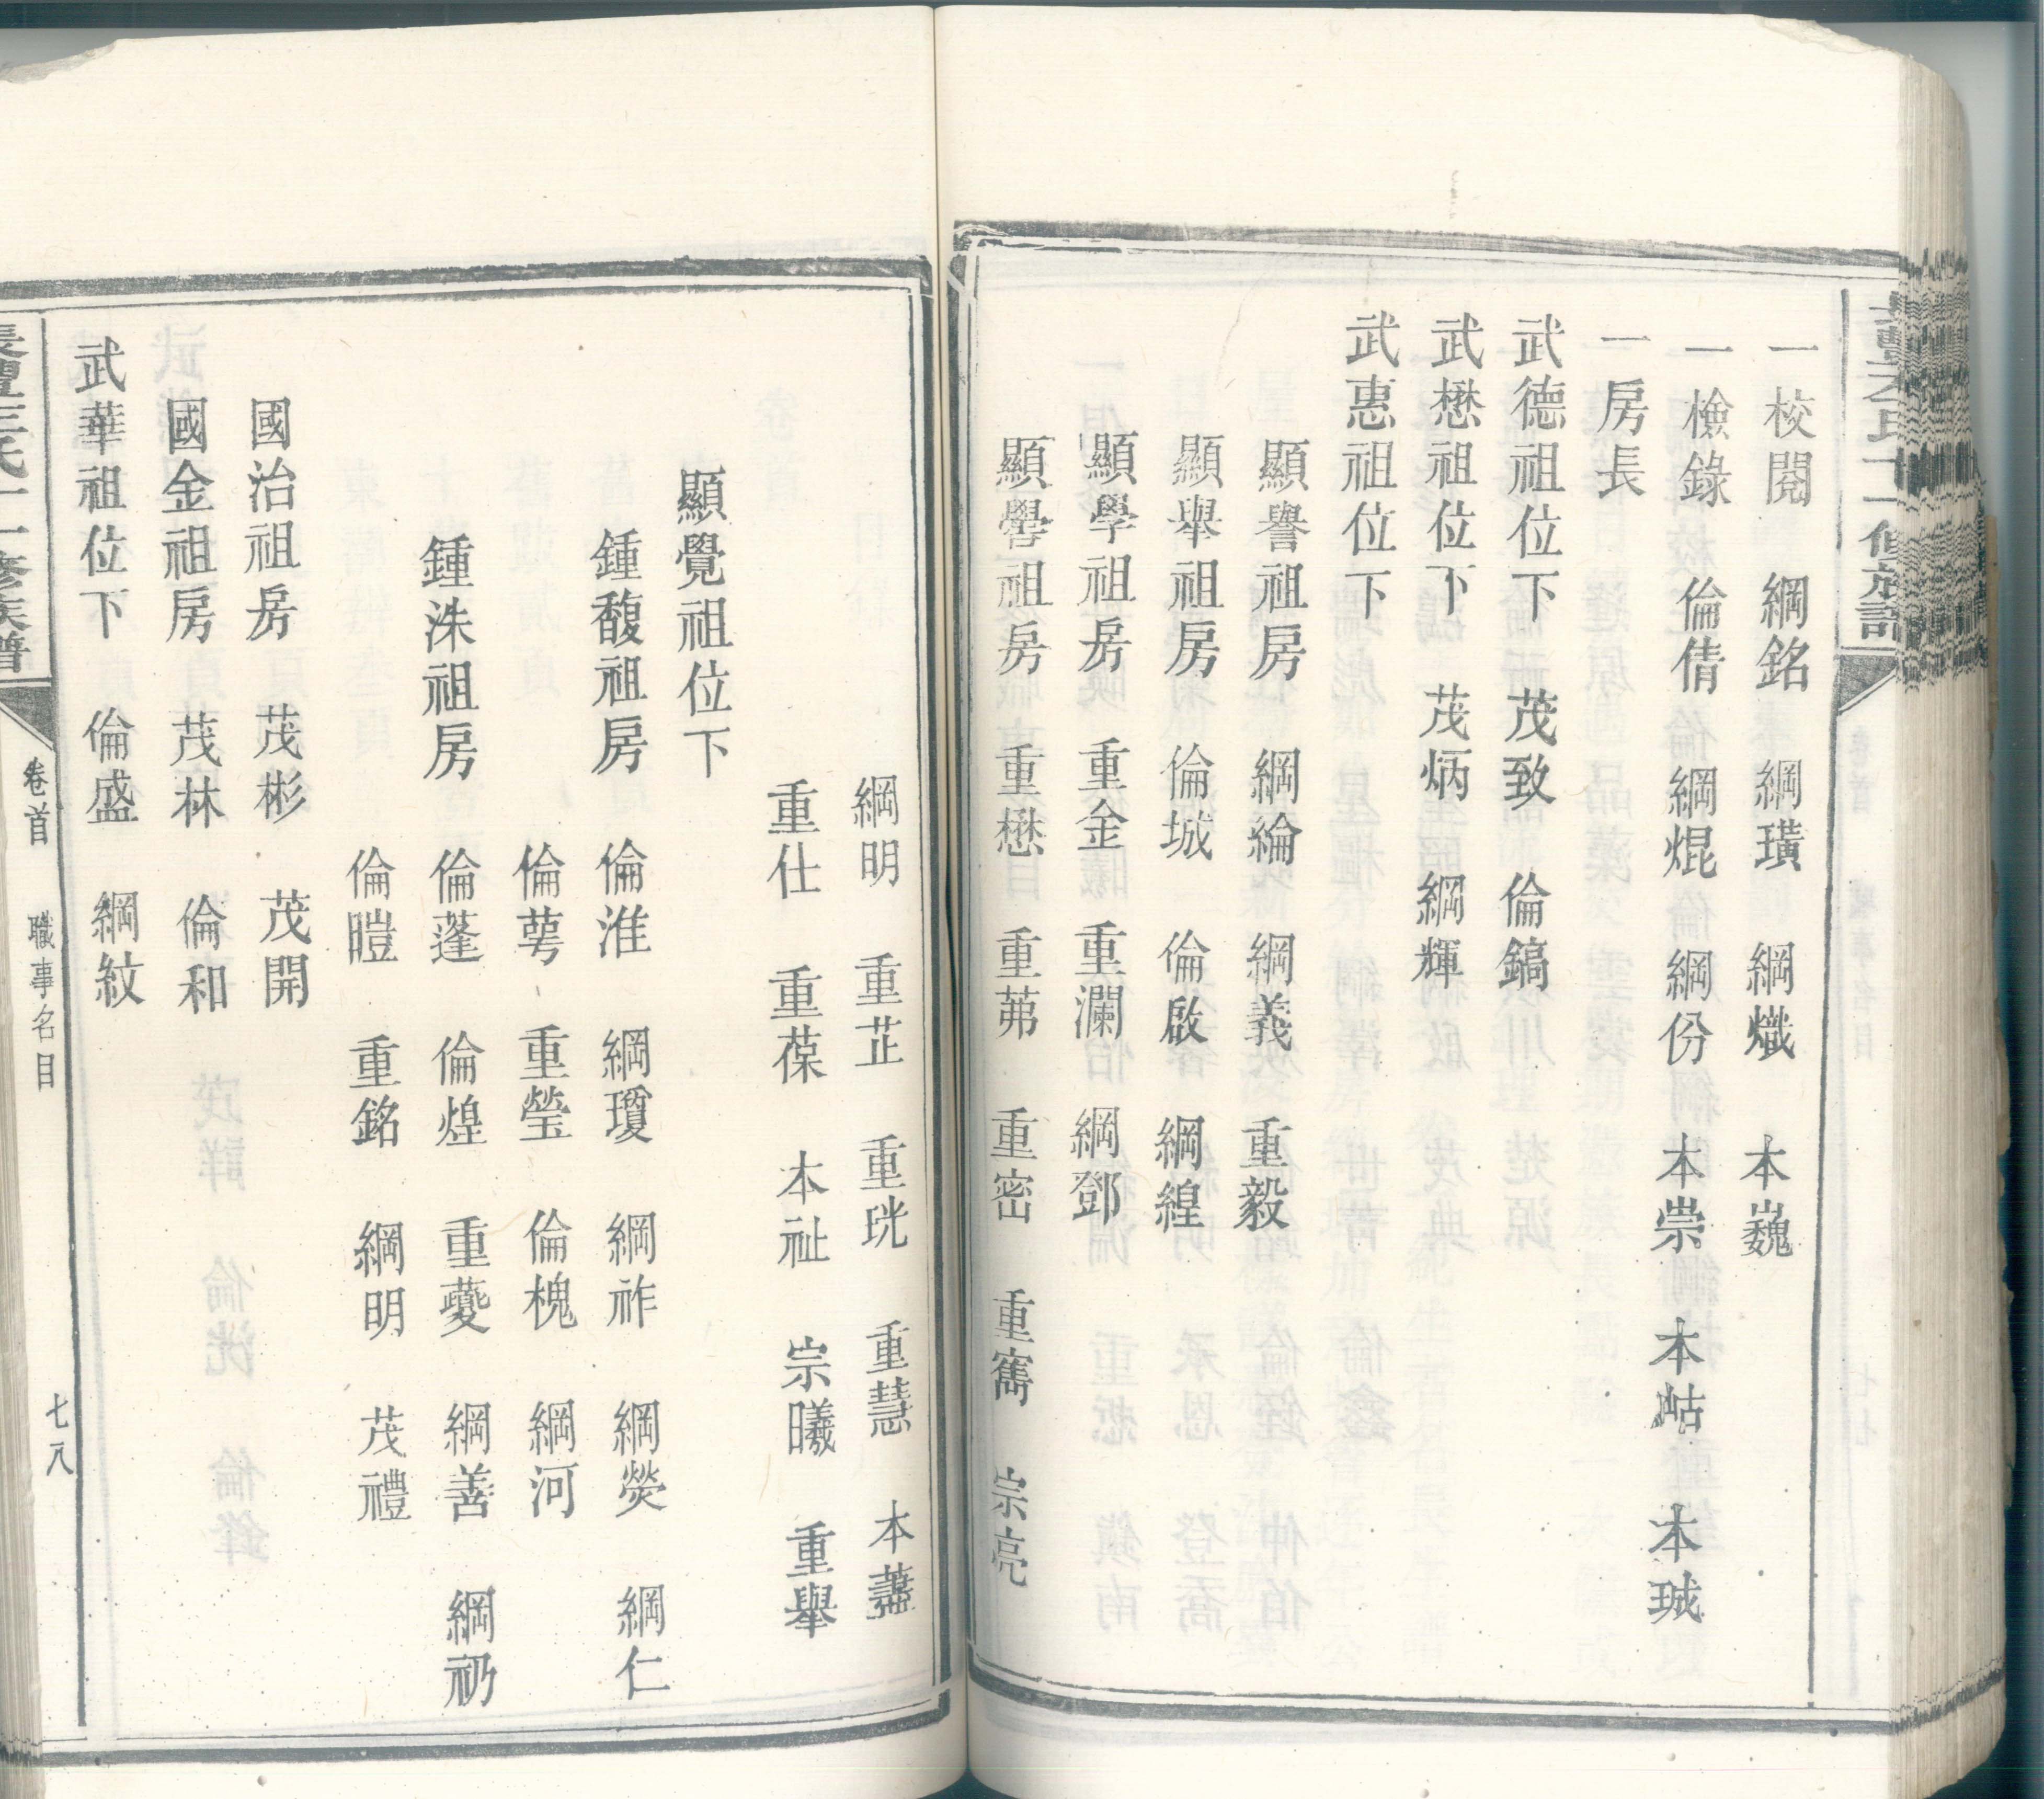 一校閱 綱銘 綱璜 綱熾 本巍
一檢錄 倫倩 綱焜 綱份 本崇 本岵 本珹
一房長
武德祖位下 茂致 倫鎬
武懋祖位下 茂炳 綱輝
武惠祖位下
顯譽祖房 綱綸 綱義 重毅
顯舉祖房 倫城 倫啟 綱緯
顯學祖房 重金 重瀾 綱鄧
顯嚳祖房 重懋 重茀 重密 重寯 宗亮
綱明 重芷 重珖 重慧 本藎
重仕 重葆 本祉 宗曦 重舉
顯覺祖位下
鍾馥祖房 倫淮 綱瓊 綱祚 綱熒 綱仁
倫萼 重瑩 倫槐 綱河
鍾洙祖房 倫蓬 倫煌 重夔 綱善 綱礽
倫暟 重銘 綱明 茂禮
國治祖房 茂彬 茂開
國金祖房 茂林 倫和
武華祖位下 倫盛 綱紋
長澧王氏十一修族譜
卷首 職事名目
七八